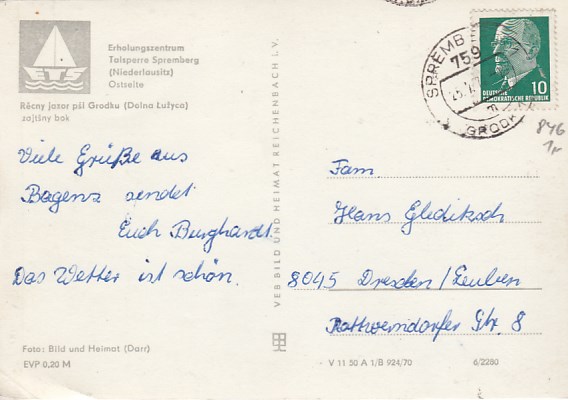 ETS
Erholungszentrum
Talsperre Spremberg
(Niederlausitz)
Ostseite
Rěcny jazor pśi Grodku (Dolna Łužyca)
zajtšny bok
Viele Grüße aus
Bagenz sendet
Euch Burghardt
Das Wetter ist schön.
Foto: Bild und Heimat (Darr)
EVP 0,20 M
VEB BILD UND HEIMAT REICHENBACH I. V.
SPREMB
759
GRODK
10
DEUTSCHE
DEMOKRATISCHE REPUBLIK
846
Fam.
Hans Gleditzsch
8045 Dresden/Leuben
Rottwerndorfer Str. 8
V 11 50 A 1/B 924/70
6/2280